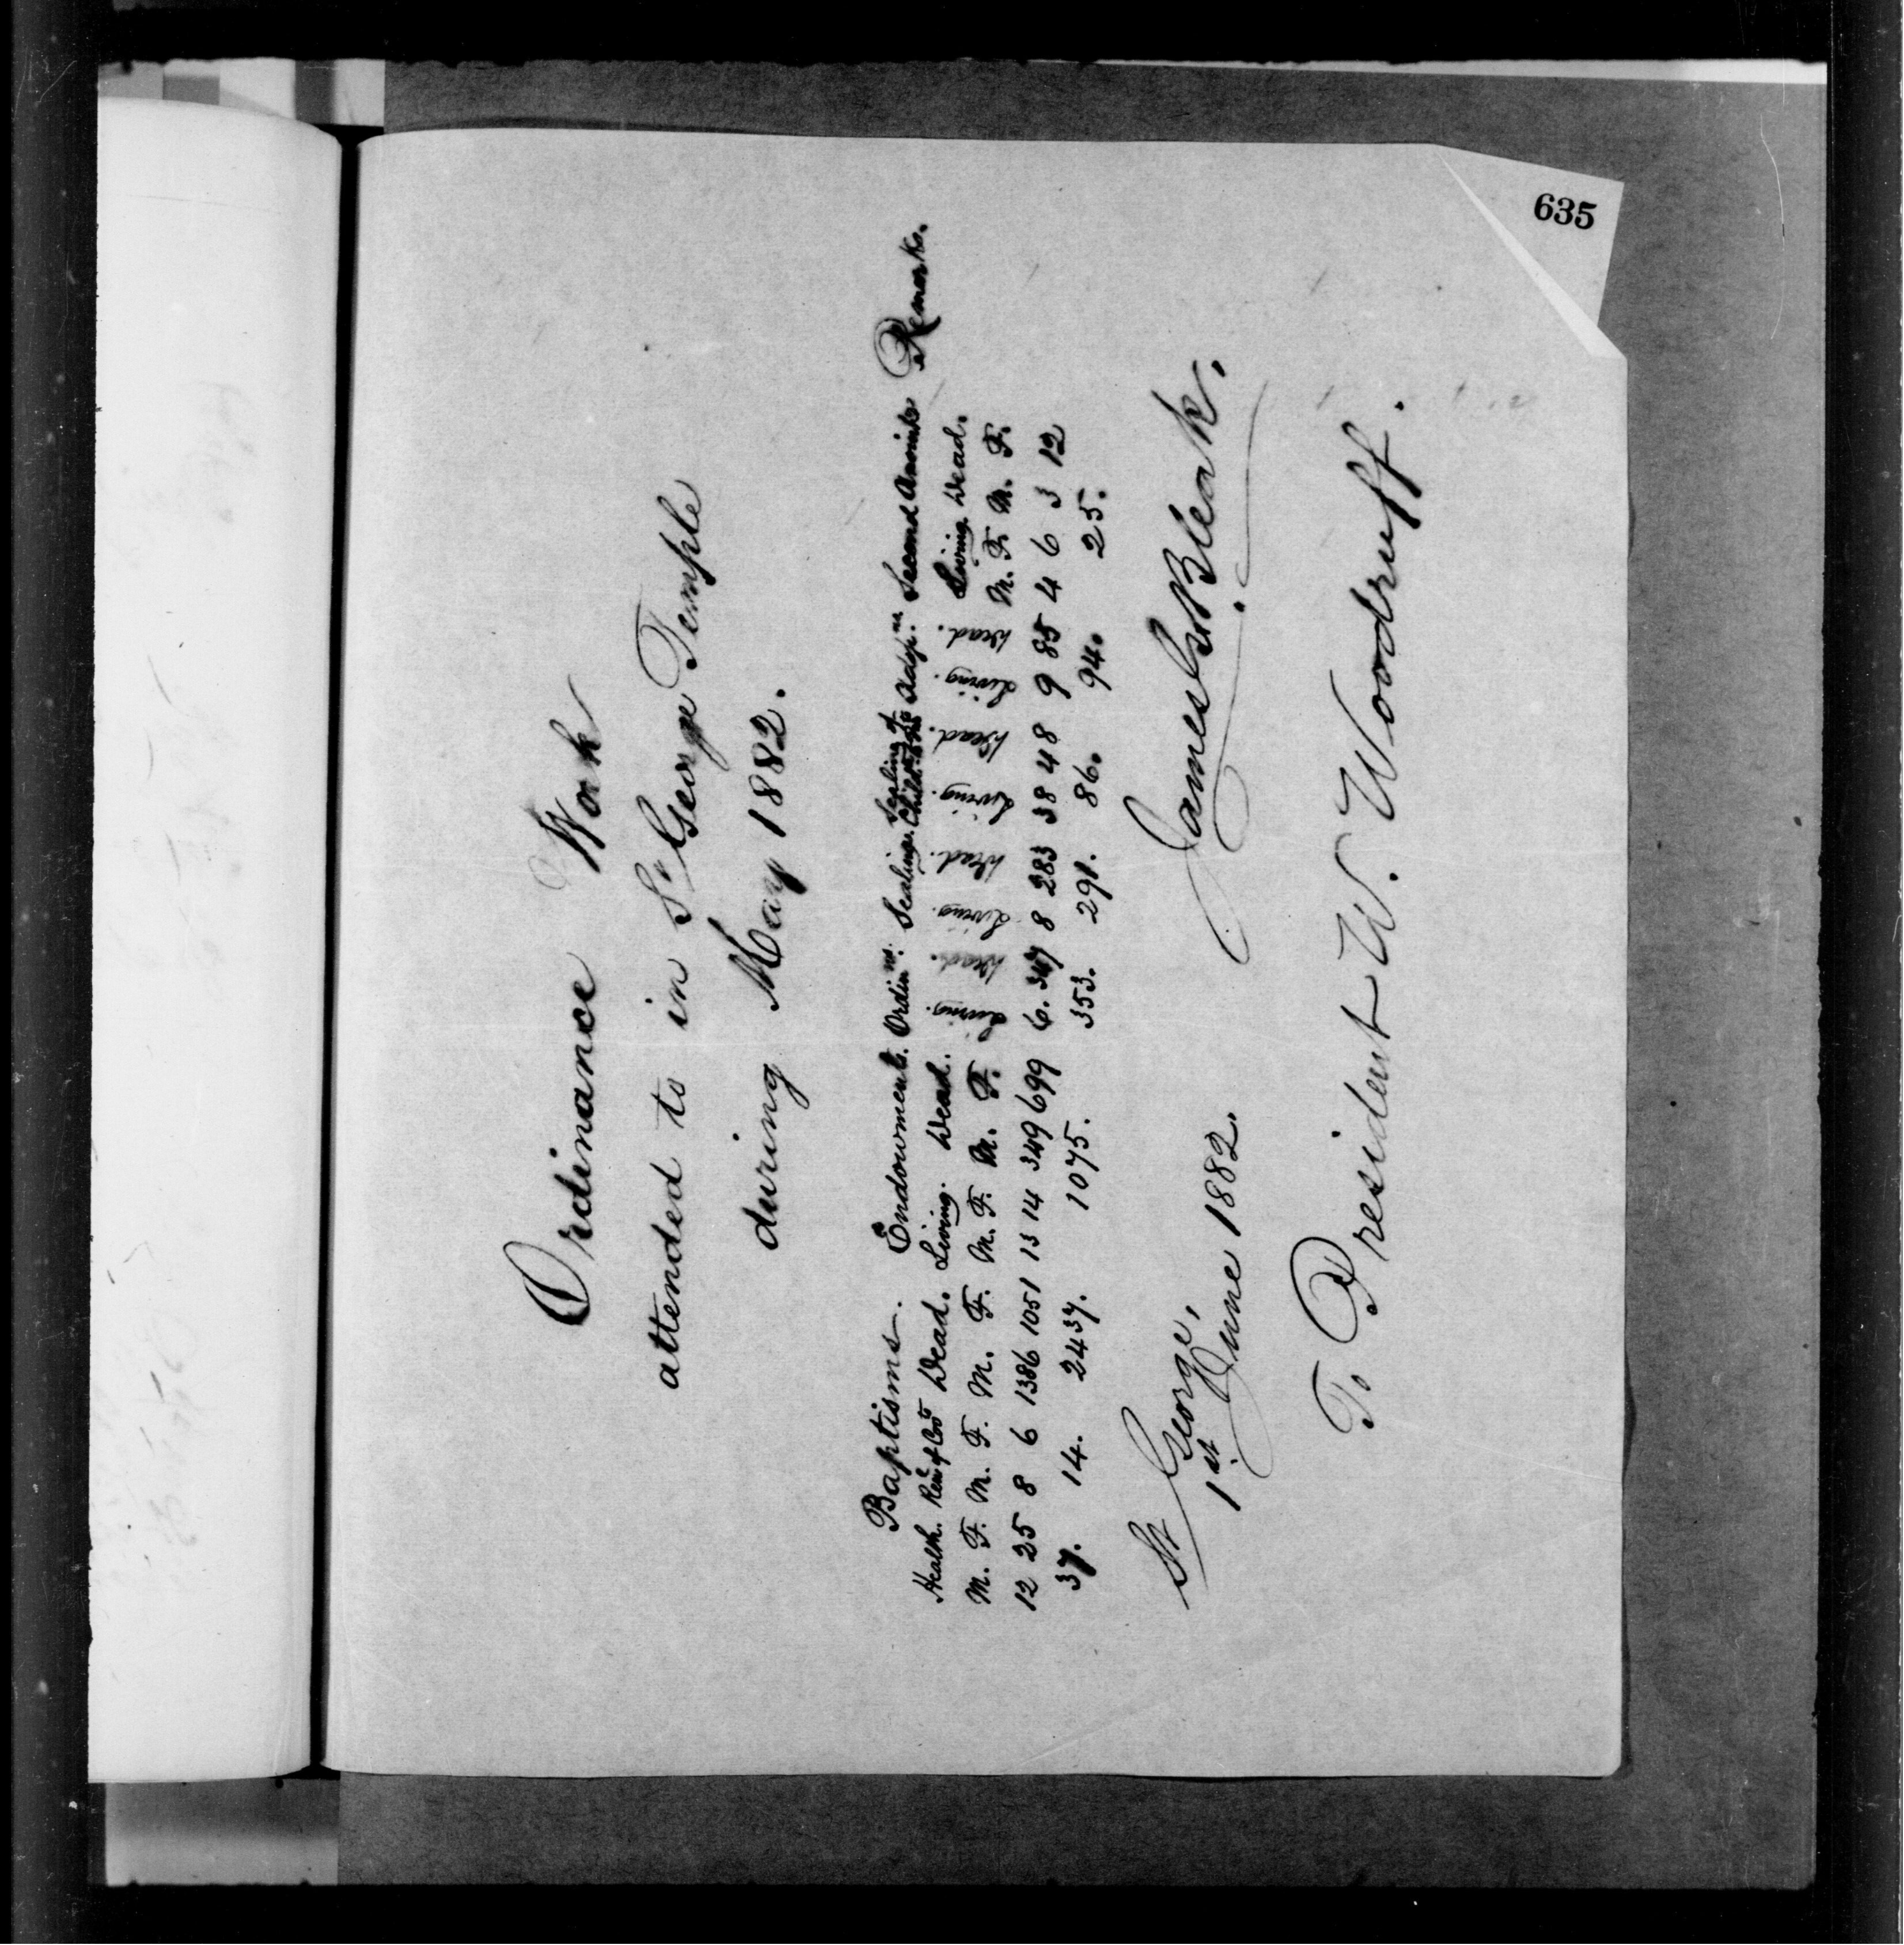 635
Ordinance Work
attended to in St George Temple
during May 1882.
Baptisms. Endowments. Ordinns. Sealings. Sealing of Adopns. Second Anoints Remarks.
Health. Rem of Cov. Dead. Living. Dead. Living. Dead. Living. Dead. Living. Dead. Living. Dead. Living. Dead.
M. F. M. F. M. F. M. F. M. F. M. F. M. F.
12 25 8 6 1386 1051 13 14 349 699 6. 347 8 283 38 48 9 85 4 6 3 12
37. 14. 2437. 1075. 353. 291. 86. 94. 25.
St George,
1st June 1882.
James G. Bleak.
To President W. Woodruff.